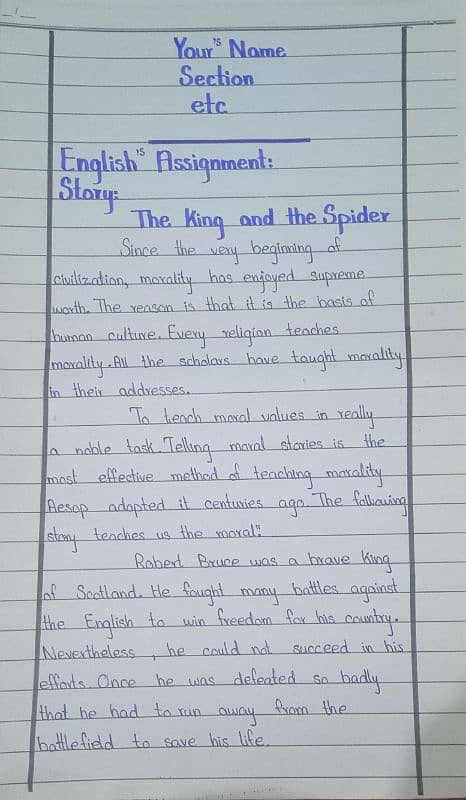 Your'^s Name
Section
etc
English'^s Assignment:
Story:
The King and the Spider
Since the very beginning of
civilization, morality has enjoyed supreme
worth. The reason is that it is the basis of
human culture. Every religion teaches
morality. All the scholars have taught morality
in their addresses.
To teach moral values in really
a noble task. Telling moral stories is the
most effective method of teaching morality
Aesop adopted it centuries ago. The following
story teaches us the moral:"
Robert Bruce was a brave King
of Scotland. He fought many battles against
the English to win freedom for his country.
Nevertheless, he could not succeed in his
efforts. Once he was defeated so badly
that he had to run away from the
battlefield to save his life.